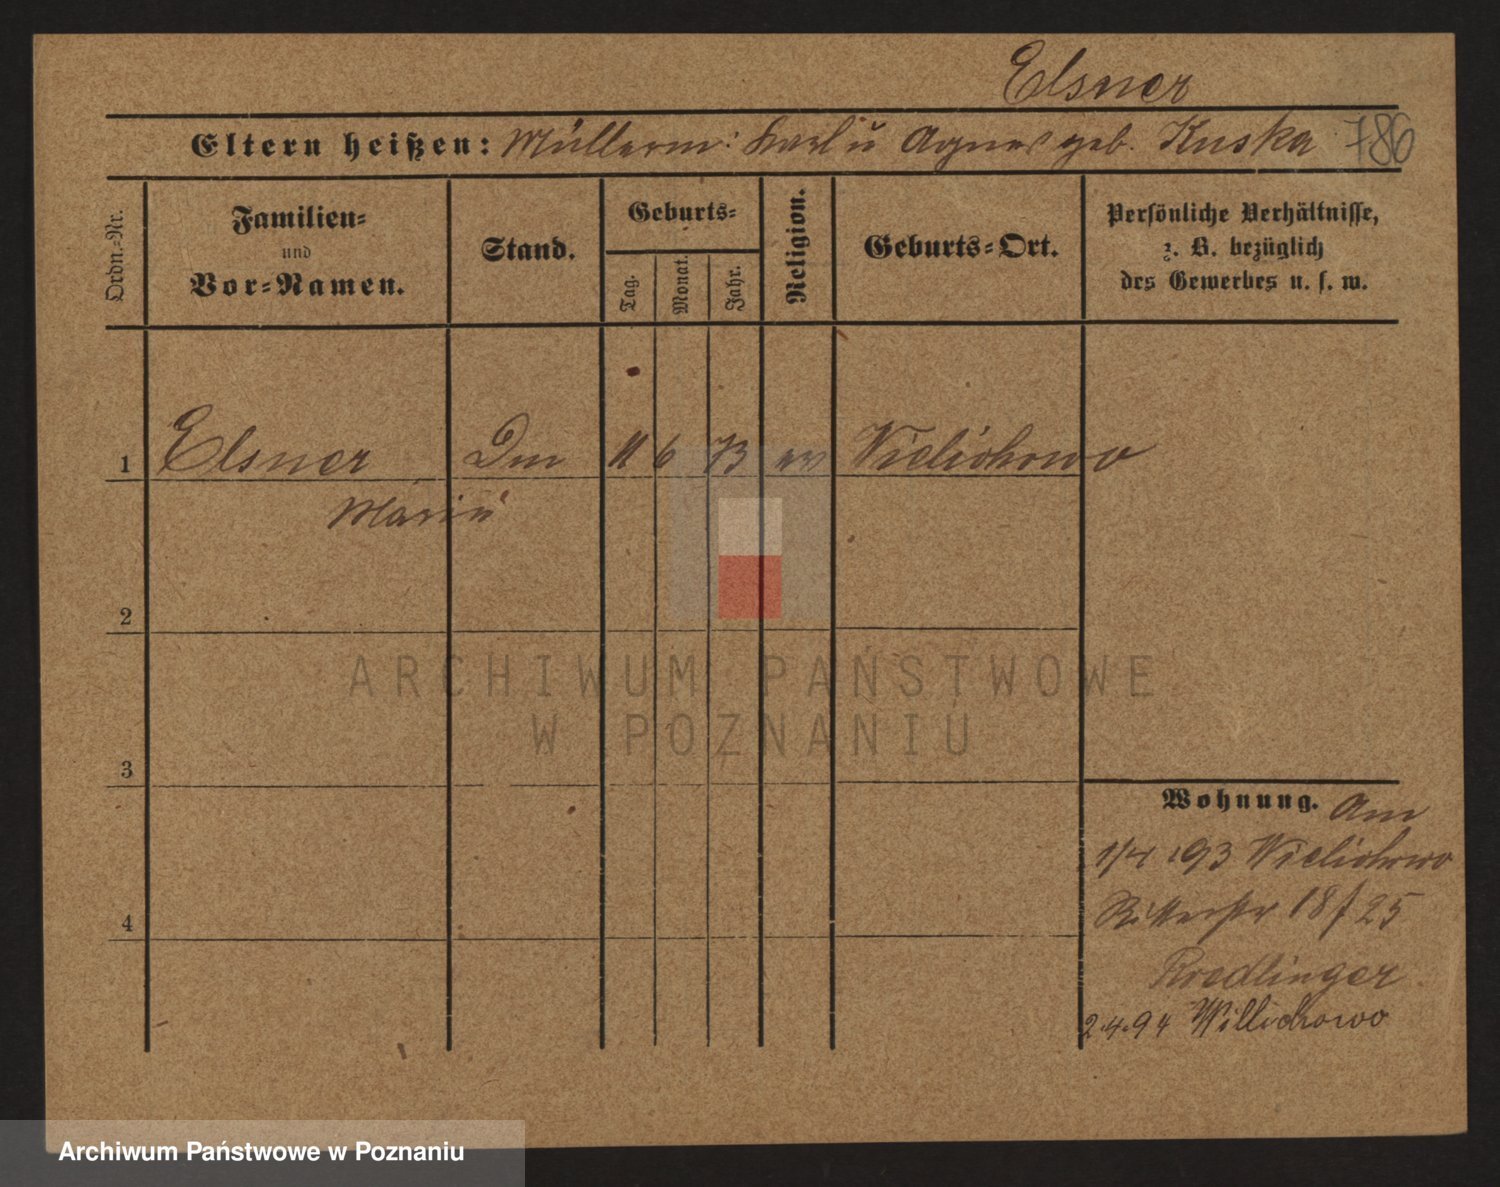 Elsner
Eltern heißen: Müllerm: Karl u Agnes geb. Kuska 786
Ordn.-Nr.
Familien-
und
Vor-Namen.
Stand.
Geburts-
Tag.
Monat.
Jahr.
Religion.
Geburts-Ort.
Persönliche Verhältnisse,
z. B. bezüglich
des Gewerbes u. s. w.
1 Elsner Dm 11 6 73 ev Vielichowo
Marie
2
3
4
Wohnung. Am
1/4 93 Vielichowo
Ritterstr 18/25
Bredlinger
2.4.94 Willichowo
ARCHIWUM PAŃSTWOWE
W POZNANIU
Archiwum Państwowe w Poznaniu